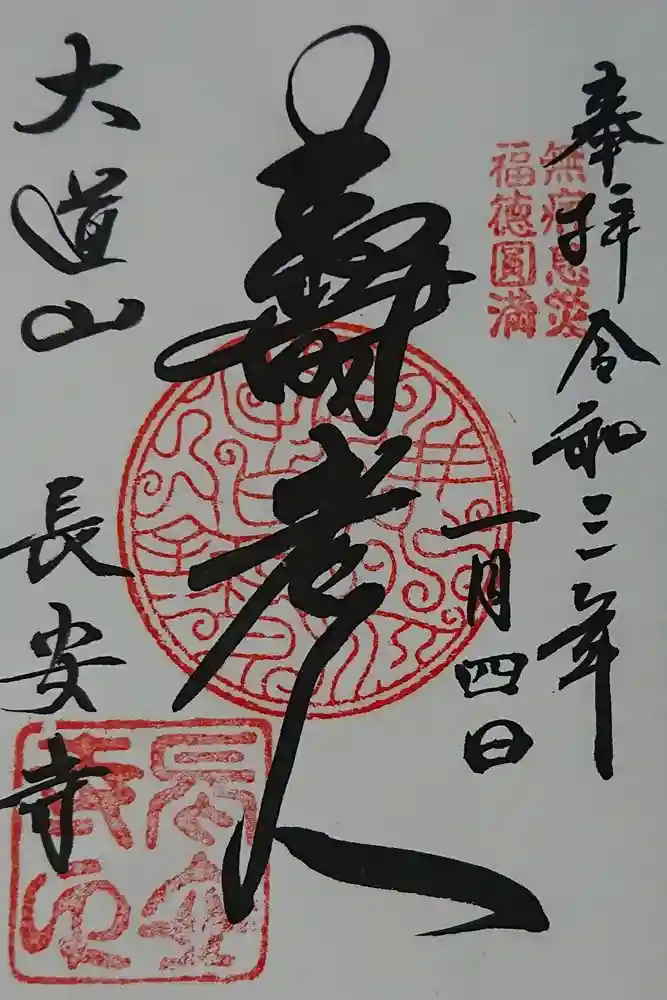 奉拝 令和三年
一月四日
無病息災
福徳圓滿
壽老人
大道山
長安寺